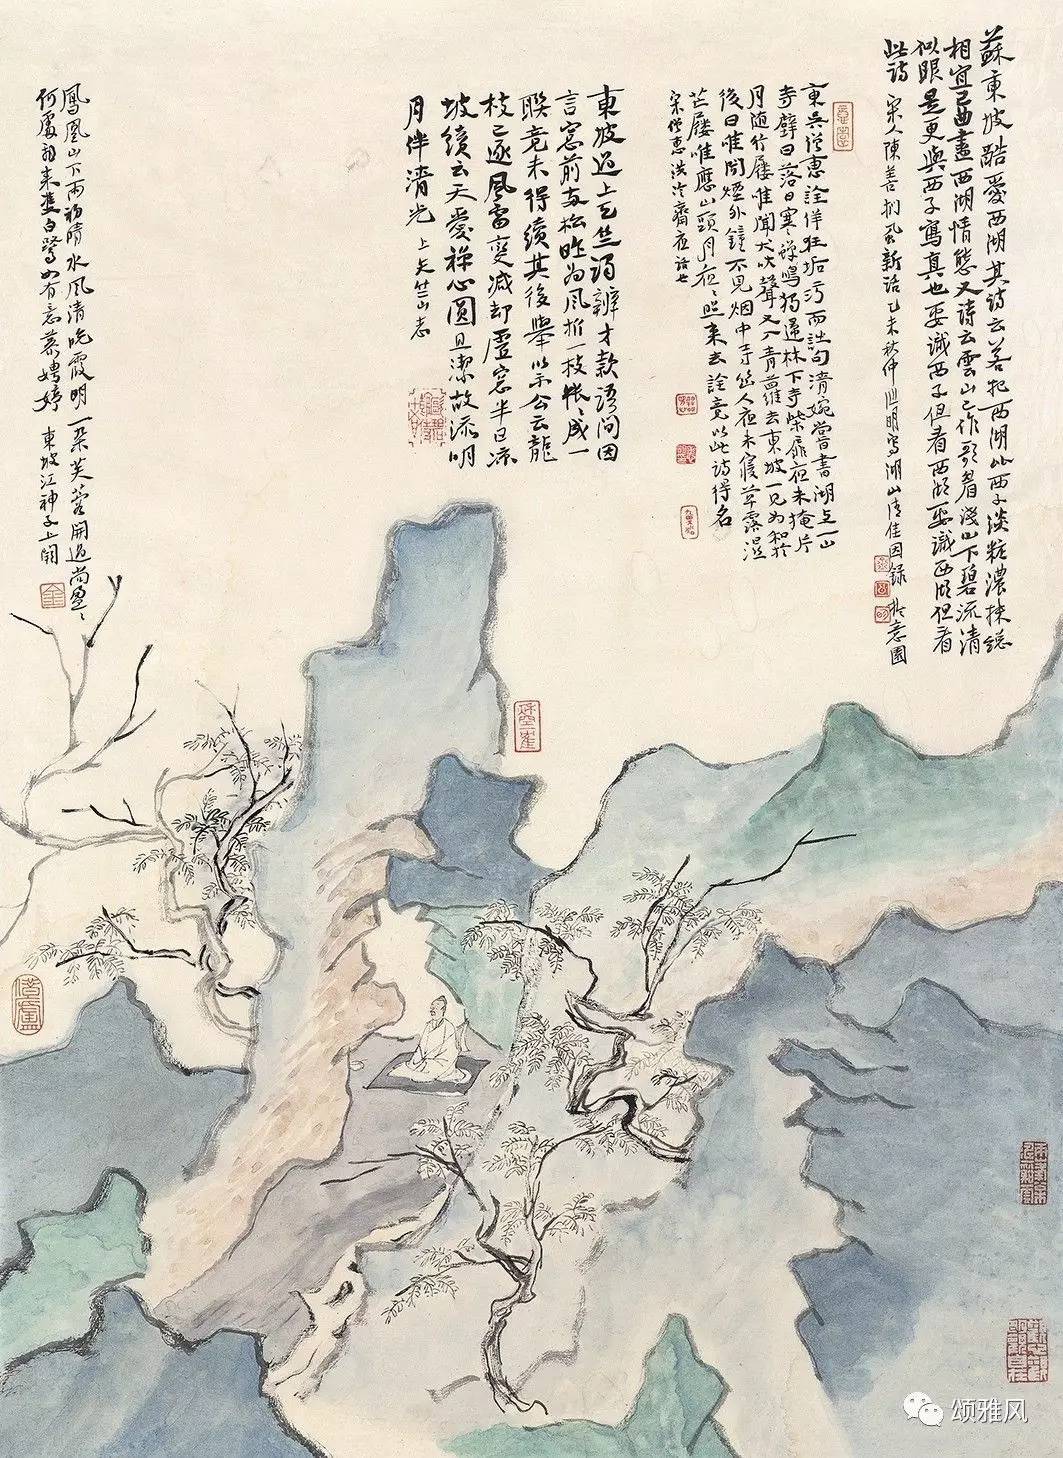 蘇東坡酷愛西湖其詩云若把西湖比西子淡粧濃抹總
相宜已曲盡西湖情態又詩云雲山已作歌眉淺山下碧流清
似眼是更與西子寫真也要識西子但看西湖要識西湖但看
此詩 宋人陳善捫虱新話 乙未秋仲 明寫湖山清佳因錄 於意園
東吳僧惠詮佯狂垢污而詩句清婉嘗書湖上一山
寺壁曰落日寒蟬鳴獨歸林下寺柴扉夜未掩片
月隨行屨唯聞犬吠聲又入青蘿去東坡一見為和於
後曰唯聞煙外鐘不見烟中寺幽人夜未寢草露濕
芒屨唯應山頭月夜々照來去詮竟以此詩得名
宋僧惠洪冷齋夜話七
東坡過上天竺謁辨才款語問因
言窓前兩松昨為風折一枝悵々成一
聯竟未得續其後舉以示公云龍
枝已逐風雷變減却虛窓半日涼
坡續云天愛禅心圓且潔故添明
月伴清光 上天竺山志
鳳凰山下雨初晴水風清晚霞明一朵芙蓉開過尚盈々
何處飛來雙白鷺如有意慕娉婷 東坡江神子上闋
颂雅风